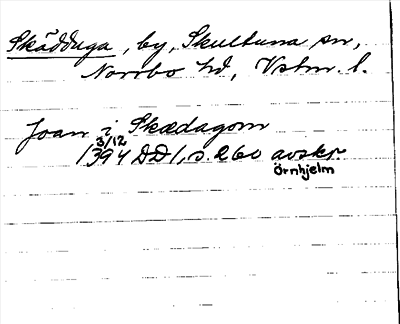 Skädduga, by, Skultuna sn,
Norrbo hd, Vstm. l.
Joan i Skædagom
3/12
1394 DD 1, s. 260 avskr.
Örnhjelm